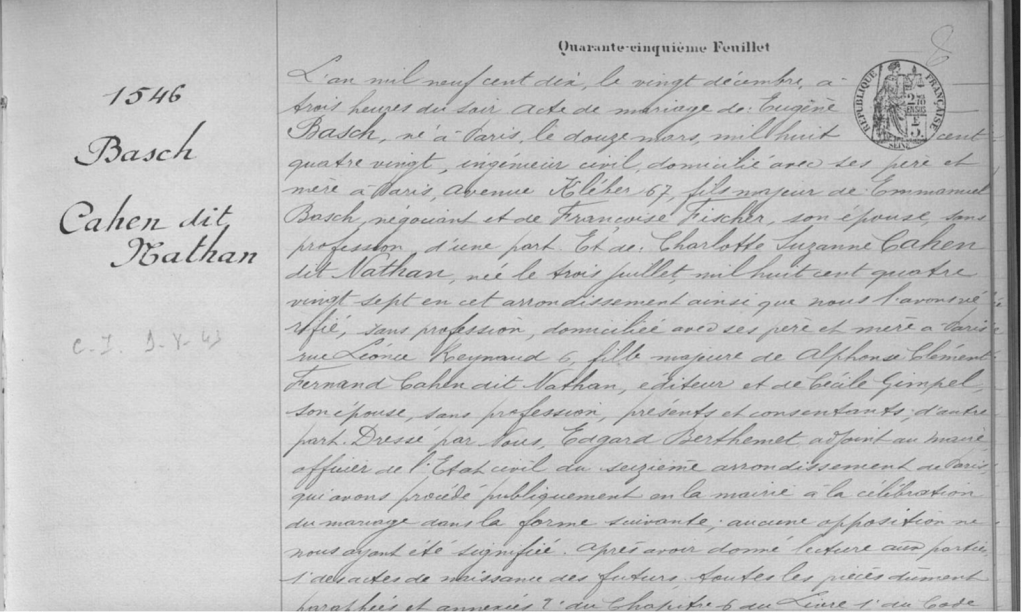 Quarante-cinquième Feuillet
1546
Basch
Cahen dit
Nathan
C. I. 9-V-43
L'an mil neuf cent dix, le vingt décembre, à
trois heures du soir acte de mariage de: Eugène
Basch, né à Paris, le douze mars, mil huit cent
quatre vingt, ingénieur civil, domicilié avec ses père et
mère à Paris, avenue Kléber 67, fils majeur de Emmanuel
Basch, négociant et de Françoise Fischer, son épouse, sans
profession, d'une part. Et de: Charlotte Suzanne Cahen
dit Nathan, née le trois juillet, mil huit cent quatre
vingt sept en cet arrondissement ainsi que nous l'avons vé
rifié, sans profession, domiciliée avec ses père et mère à Paris
rue Léonce Reynaud 6, fille majeure de Alphonse Clément
Fernand Cahen dit Nathan, éditeur et de Cécile Gimpel,
son épouse, sans profession, présents et consentants, d'autre
part. Dressé par Nous, Edgard Berthemet, adjoint au maire
officier de l'Etat civil du seizième arrondissement de Paris
qui avons procédé publiquement en la mairie à la célébration
du mariage dans la forme suivante; aucune opposition ne
nous ayant été signifiée. après avoir donné lecture aux parties,
1° des actes de naissance des futurs toutes les pièces dûment
paraphées et annexées 2° du Chapitre 6 du Livre 1er du Code
REPUBLIQUE FRANÇAISE
SEINE